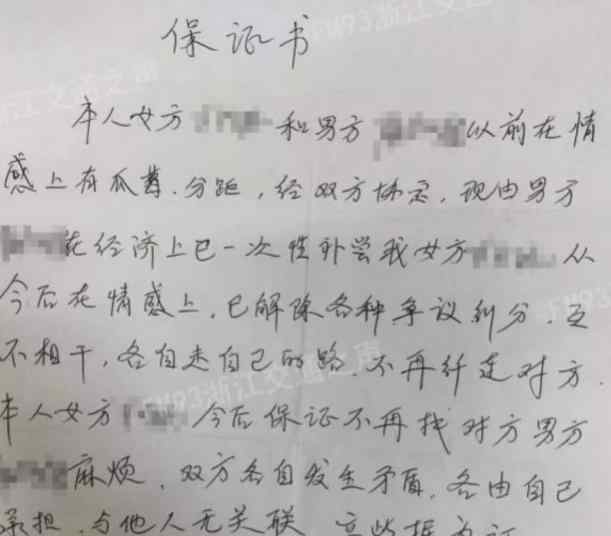 保证书
本人女方 和男方 以前在情
感上有瓜葛.分距，经双方协定，现由男方
在经济上已一次性补尝我女方 从
今后在情感上，已解除各种争议纠分.互
不相干，各自走自己的路.不再纤连对方.
本人女方 今后保证不再找对方男方
麻烦，双方各自发生矛盾，各由自己
承担，与他人无关联
FM93浙江交通之声
浙江交通之声
FM93浙江交通之声